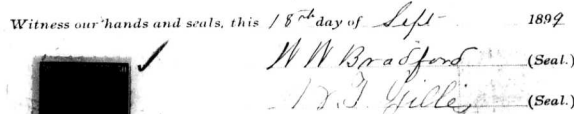 Witness our hands and seals, this 18th day of Sept 1899
W W Bradford (Seal.)
Gillis (Seal.)